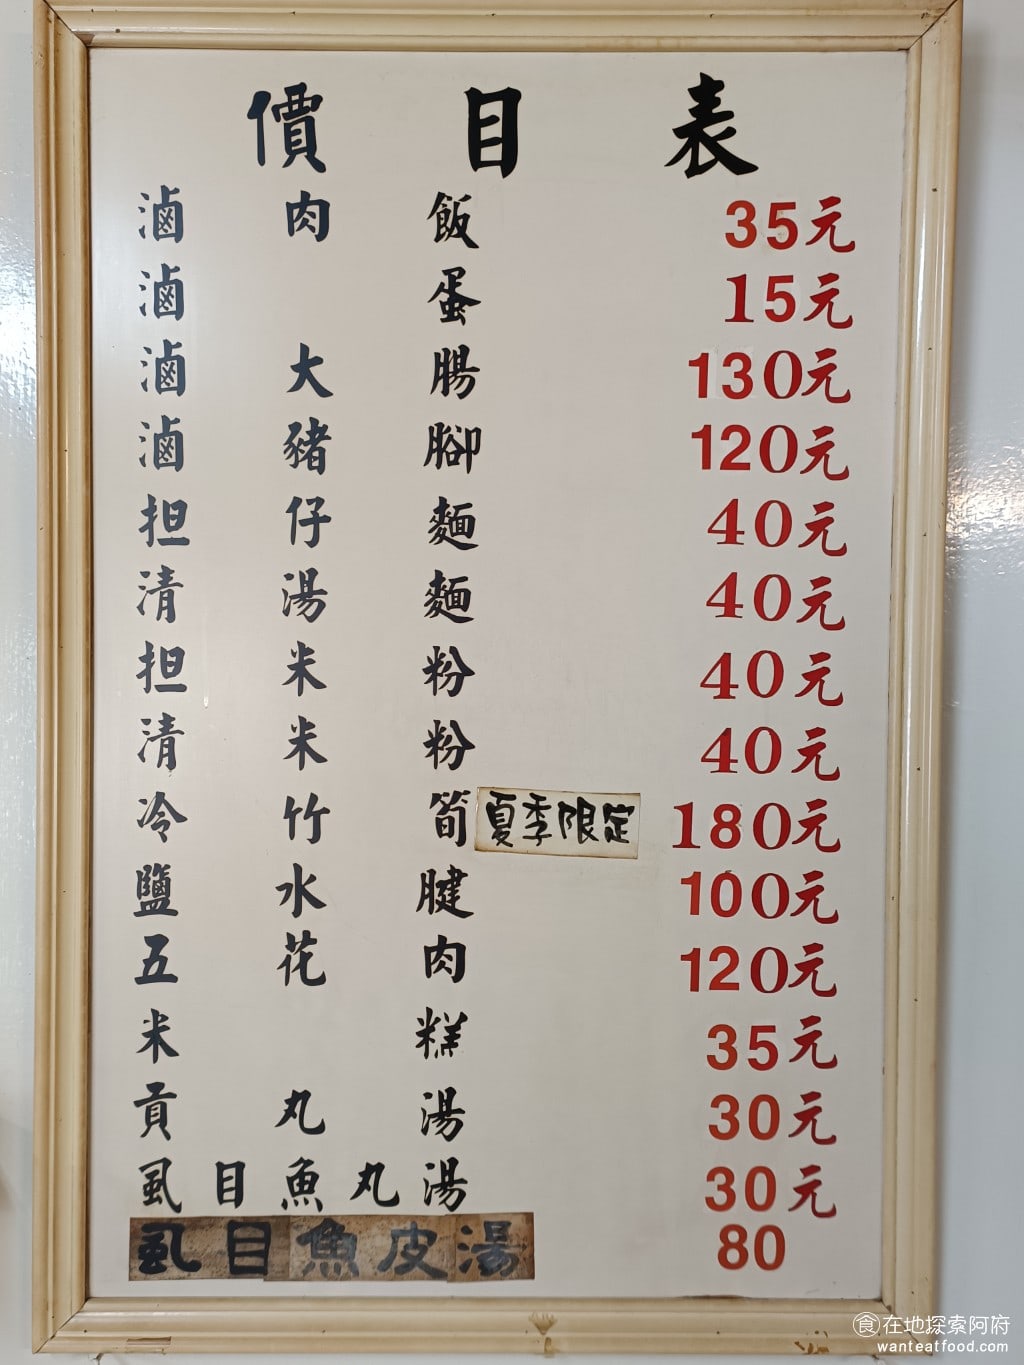 價目表
滷肉飯 35元
滷蛋 15元
滷大腸 130元
滷豬腳 120元
担仔麵 40元
清湯麵 40元
担米粉 40元
清米粉 40元
冷竹筍 夏季限定 180元
鹽水腱 100元
五花肉 120元
米糕 35元
貢丸湯 30元
虱目魚丸湯 30元
虱目魚皮湯 80
食在地探索阿府
wanteatfood.com